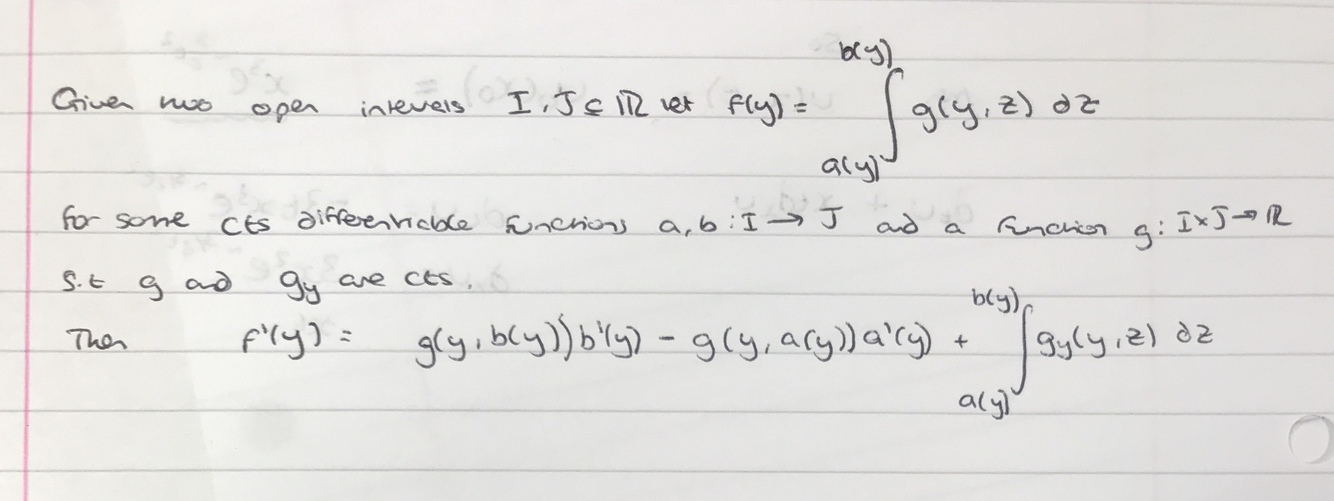 Given two open intevels I, J ⊆ ℝ let f(y) = ∫_{a(y)}^{b(y)} g(y,z) dz
for some cts differentiable functions a, b : I → J and a function g : I×J → ℝ
s.t g and g_y are cts.
Then f'(y) = g(y, b(y)) b'(y) - g(y, a(y)) a'(y) + ∫_{a(y)}^{b(y)} g_y(y,z) dz